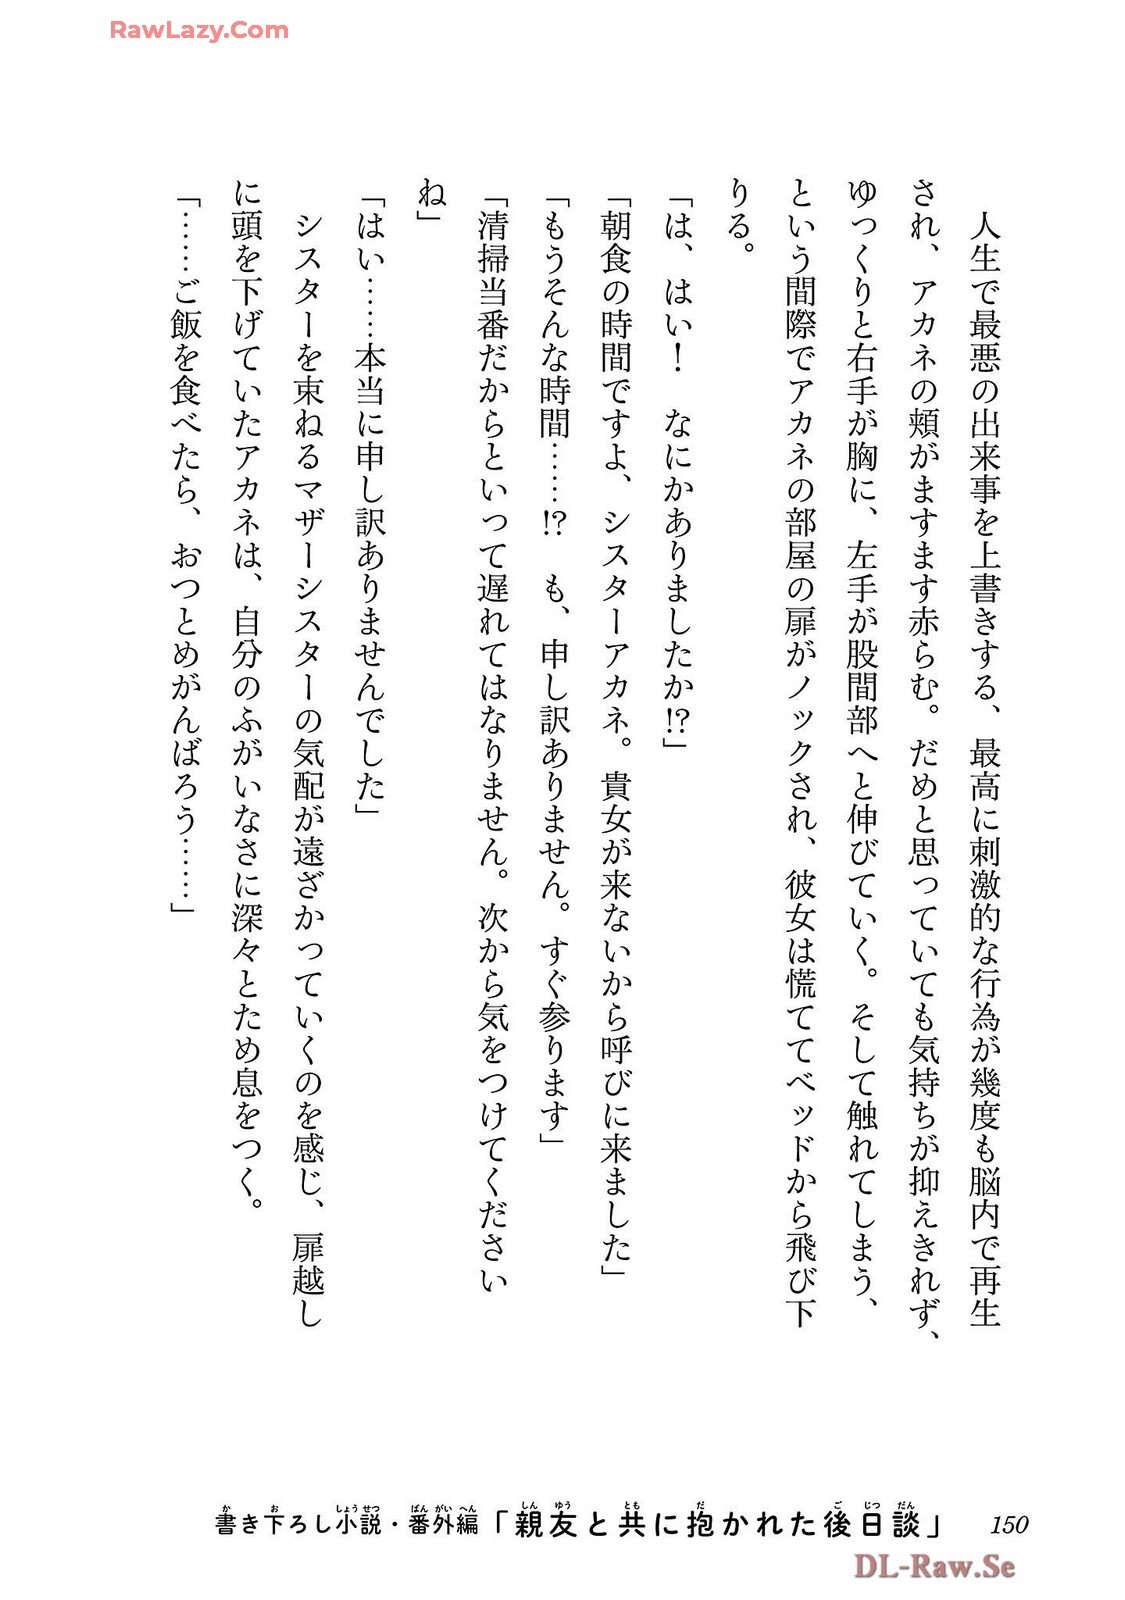 RawLazy.Com
　人生で最悪の出来事を上書きする、最高に刺激的な行為が幾度も脳内で再生
され、アカネの頬がますます赤らむ。だめと思っていても気持ちが抑えきれず、
ゆっくりと右手が胸に、左手が股間部へと伸びていく。そして触れてしまう、
という間際でアカネの部屋の扉がノックされ、彼女は慌ててベッドから飛び下
りる。
「は、はい！　なにかありましたか!?」
「朝食の時間ですよ、シスターアカネ。貴女が来ないから呼びに来ました」
「もうそんな時間……!?　も、申し訳ありません。すぐ参ります」
「清掃当番だからといって遅れてはなりません。次から気をつけてください
ね」
「はい……本当に申し訳ありませんでした」
　シスターを束ねるマザーシスターの気配が遠ざかっていくのを感じ、扉越し
に頭を下げていたアカネは、自分のふがいなさに深々とため息をつく。
「……ご飯を食べたら、おつとめがんばろう……」
書き下ろし小説・番外編「親友と共に抱かれた後日談」 150
DL-Raw.Se